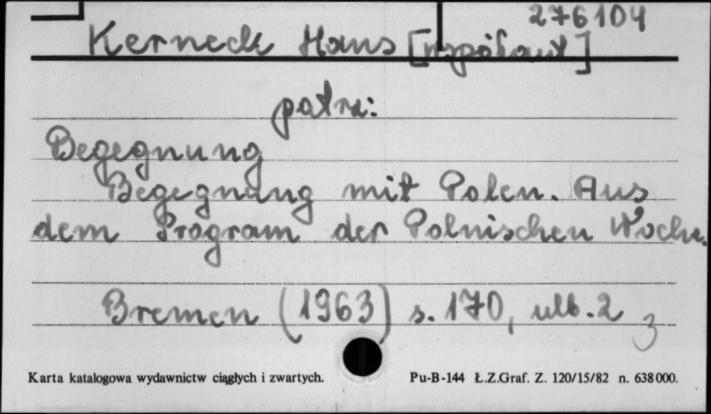 276104
Kerneck Hans [współaut]
patrz:
Begegnung
Begegnung mit Polen. Aus
dem Program der Polnischen Woche.
Bremen (1963) s. 170, ulb. 2
3
Karta katalogowa wydawnictw ciągłych i zwartych. Pu-B-144 Ł.Z.Graf. Z. 120/15/82 n. 638000.